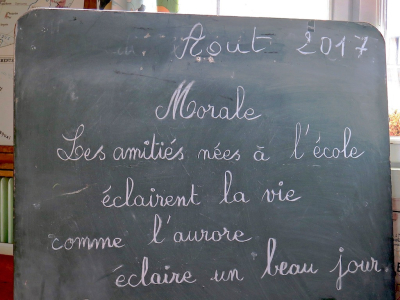 Août 2017
Morale
Les amitiés nées à l'école
éclairent la vie
comme l'aurore
éclaire un beau jour.